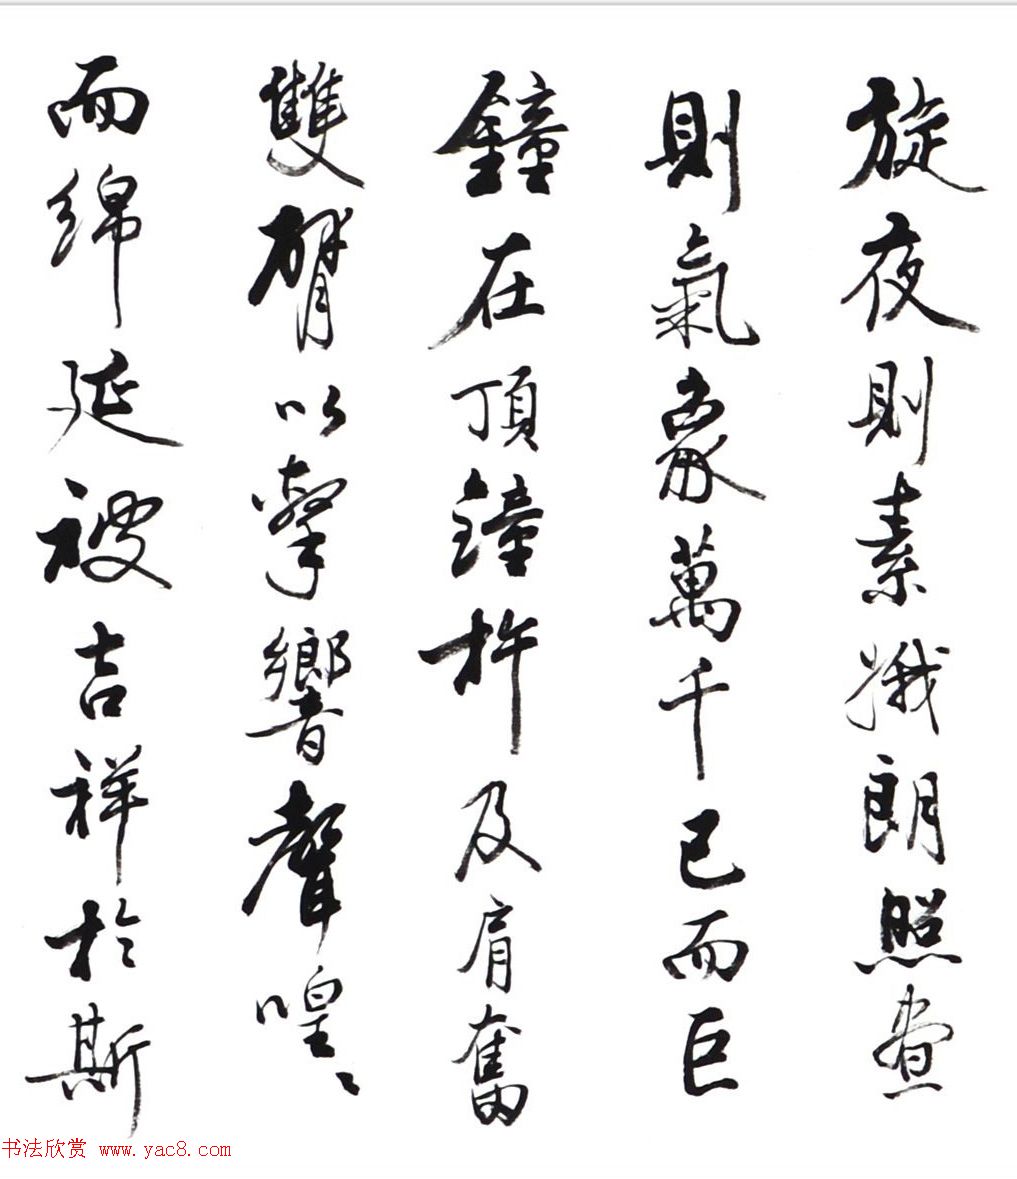 旋夜則素娥朗照晝
則氣象萬千已而巨
鐘在頂鐘杵及肩奮
雙臂以擊響聲喤〻
而綿延被吉祥於斯
书法欣赏 www.yac8.com